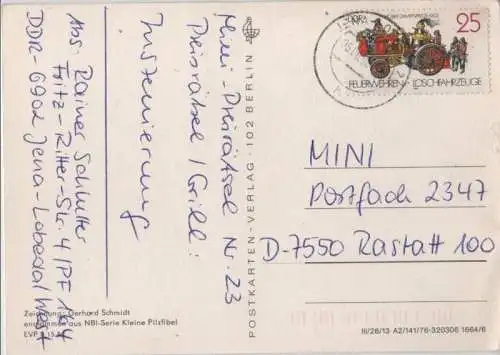 Mini-Preisrätsel Nr. 23
Preisrätsel / Grill:
Inszenierung
Abs. Rainer Schlutter
Fritz-Ritter-Str. 4/PF 164
DDR-6902 Jena-Lobeda/West
Zeichnung: Gerhard Schmidt
entnommen aus NBI-Serie Kleine Pilzfibel
EVP
POSTKARTEN-VERLAG · 102 BERLIN
DDR
25
FEUERWEHREN - LÖSCHFAHRZEUGE
MINI
Postfach 2347
D-7550 Rastatt 100
III/26/13 A2/141/76-320306 1664/6